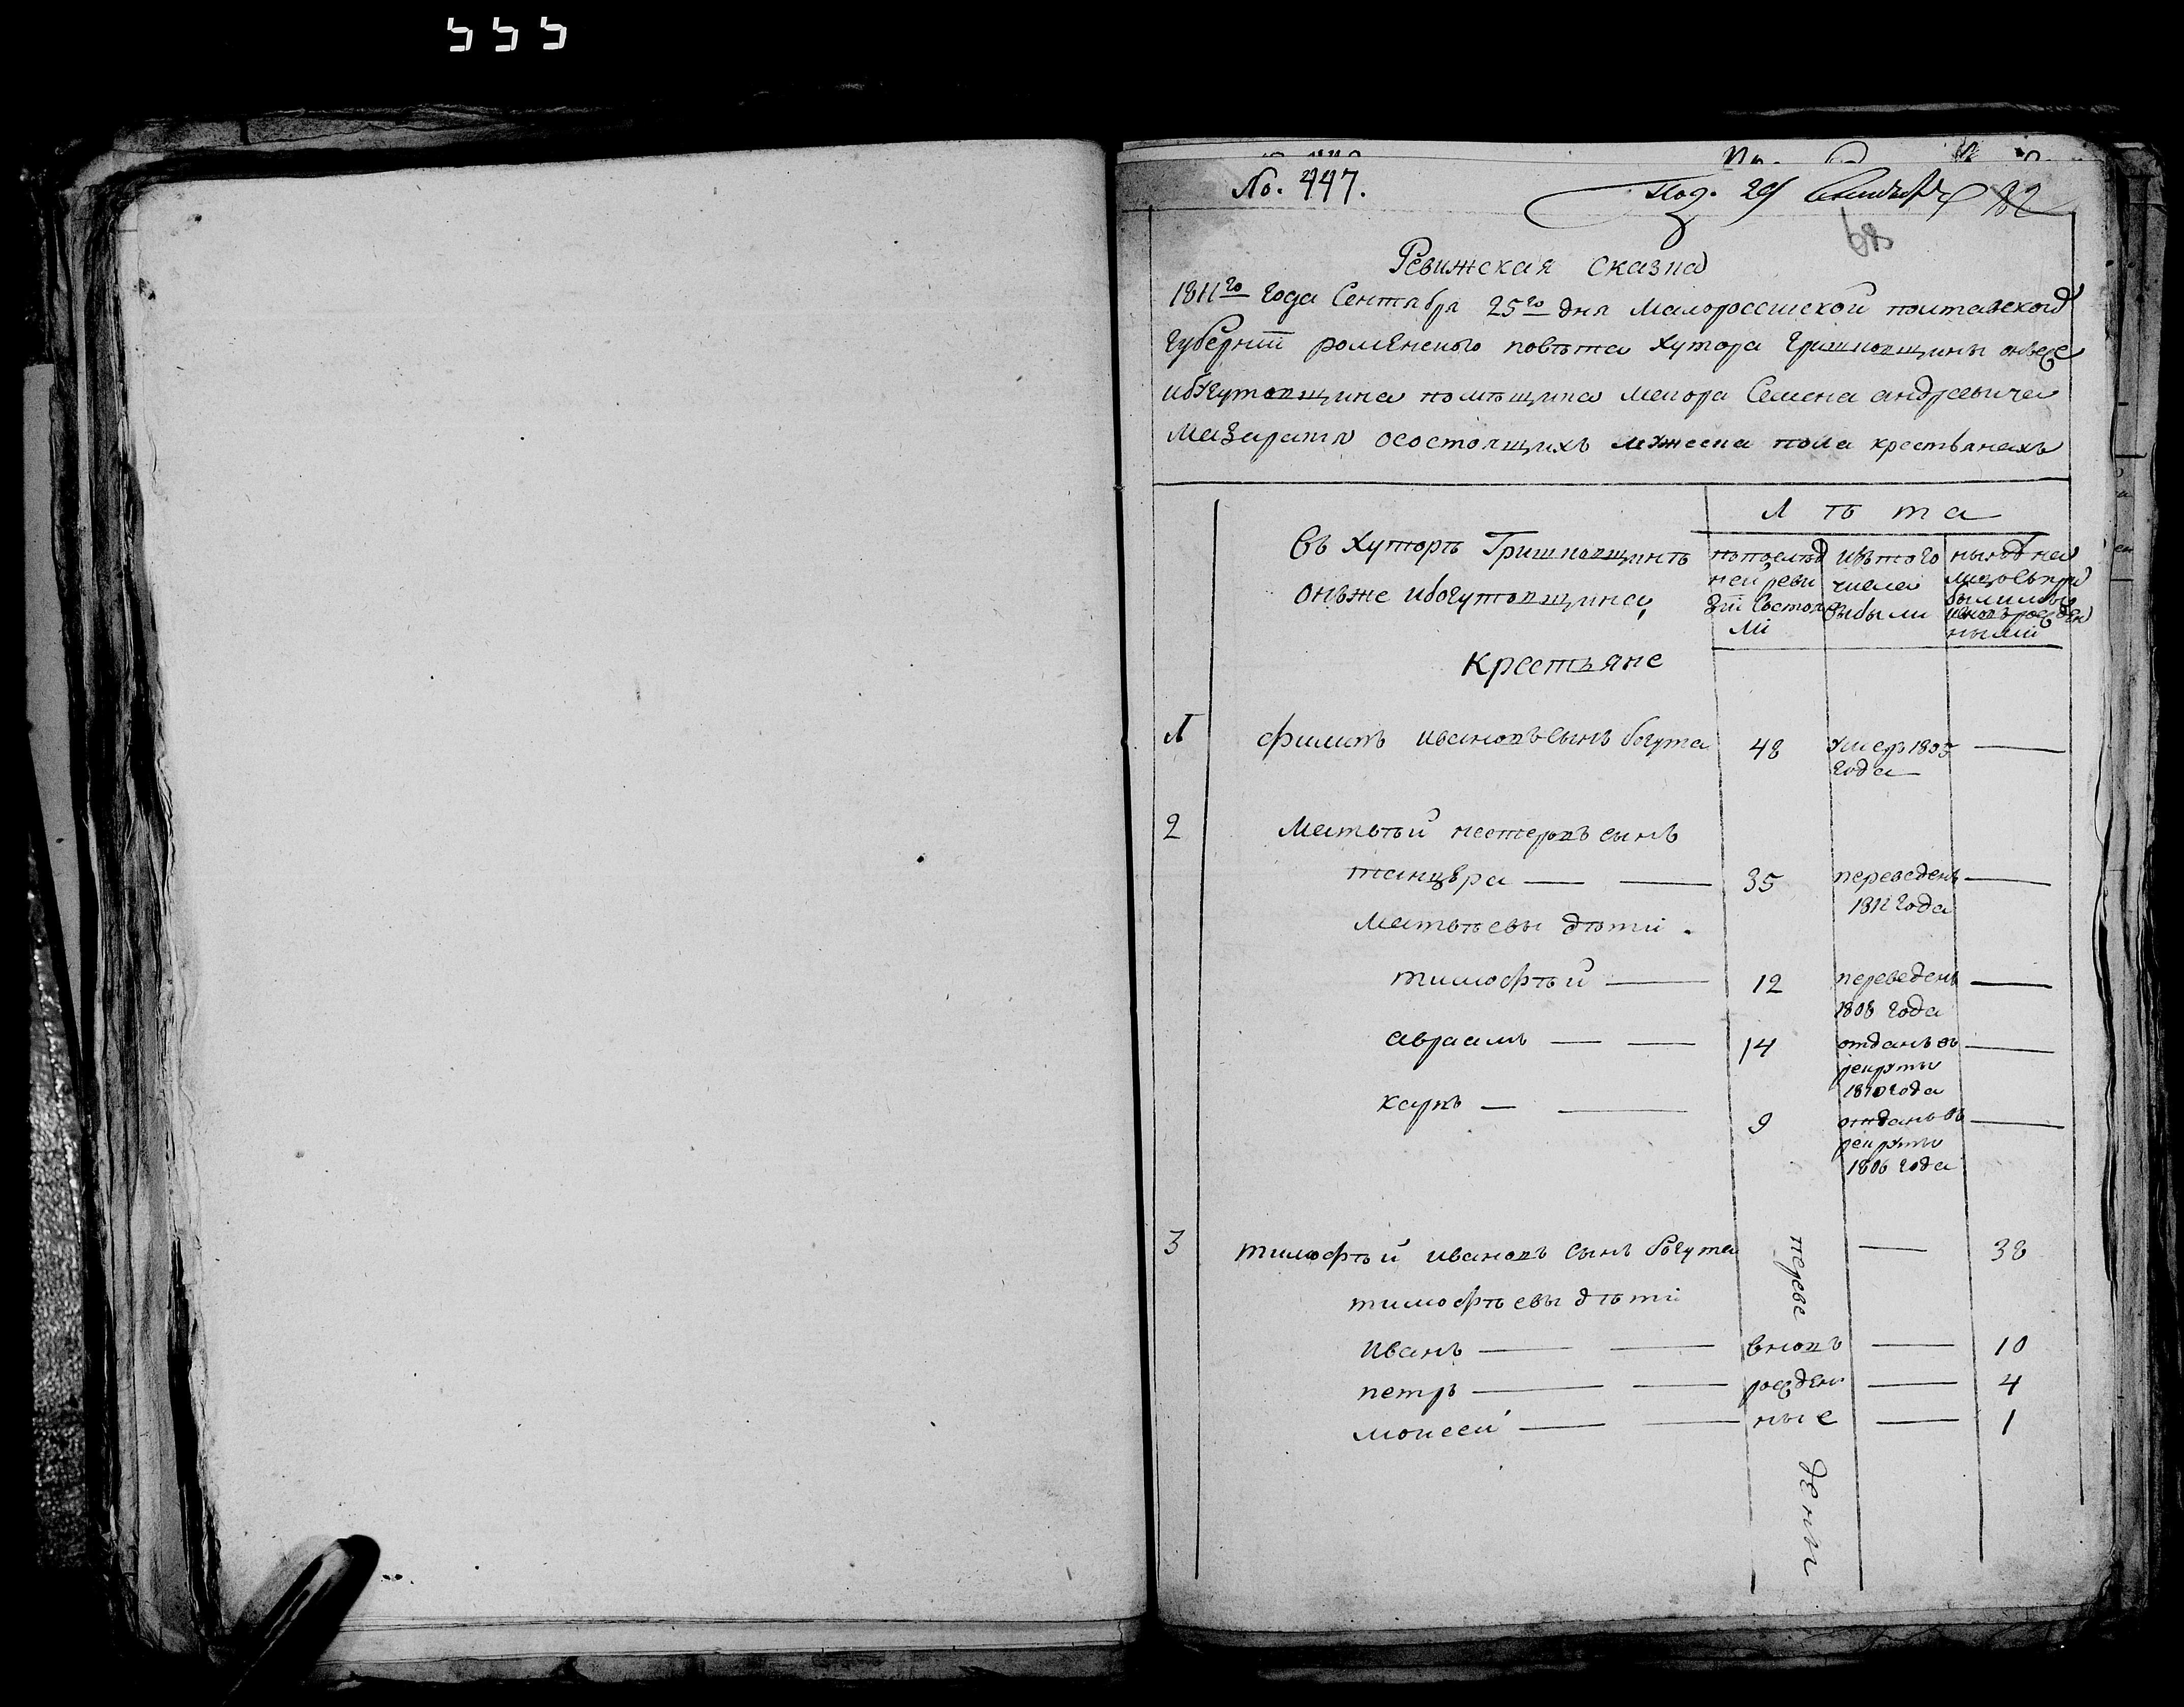 No. 447.
Под. 29 Сентября 82
68
Ревижская сказка
1811го года Сентября 25го дня малороссииской полтавской
Губернии роменского повѣта хутора Гришковщины онъже
ибогутовщина помѣщика маиора Семена андреевича
Мазараки осостоящихъ мужеска пола крестьянахъ
Лѣта
Въ хуторѣ Гришковщинѣ
онъже ибогутовщина,
попослѣд
ней реви
зии состоял
ли
изътого
числа
выбыли
нынѣ на
лицо съпри
былими
ивновърожден
ными
крестьяне
1 филипъ ивановъ сынъ богута 48 умер 1805 —
года
2 Матвѣй нестеровъ сынъ
танцюра — — 35 переведенъ —
1811 года
матвѣевы дѣти.
тимофѣй — 12 переведенъ —
1808 года
авраамъ — — 14 отданъ въ —
рекруты
1810 года
карпъ — — 9 отданъ въ —
рекруты
1806 года
3 тимофѣй ивановъ сынъ богута переве — 38
тимофѣевы дѣти
иванъ — — вновъ — 10
петръ — — рожден — 4
моисей — — ные — 1
дени